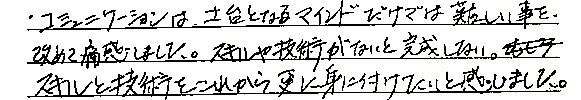 ・コミュニケーションは、土台となるマインドだけでは難しい事を、
改めて痛感しました。スキルや技術がないと完成しない。
スキルと技術をこれから更に身に付けてたいと感じました。